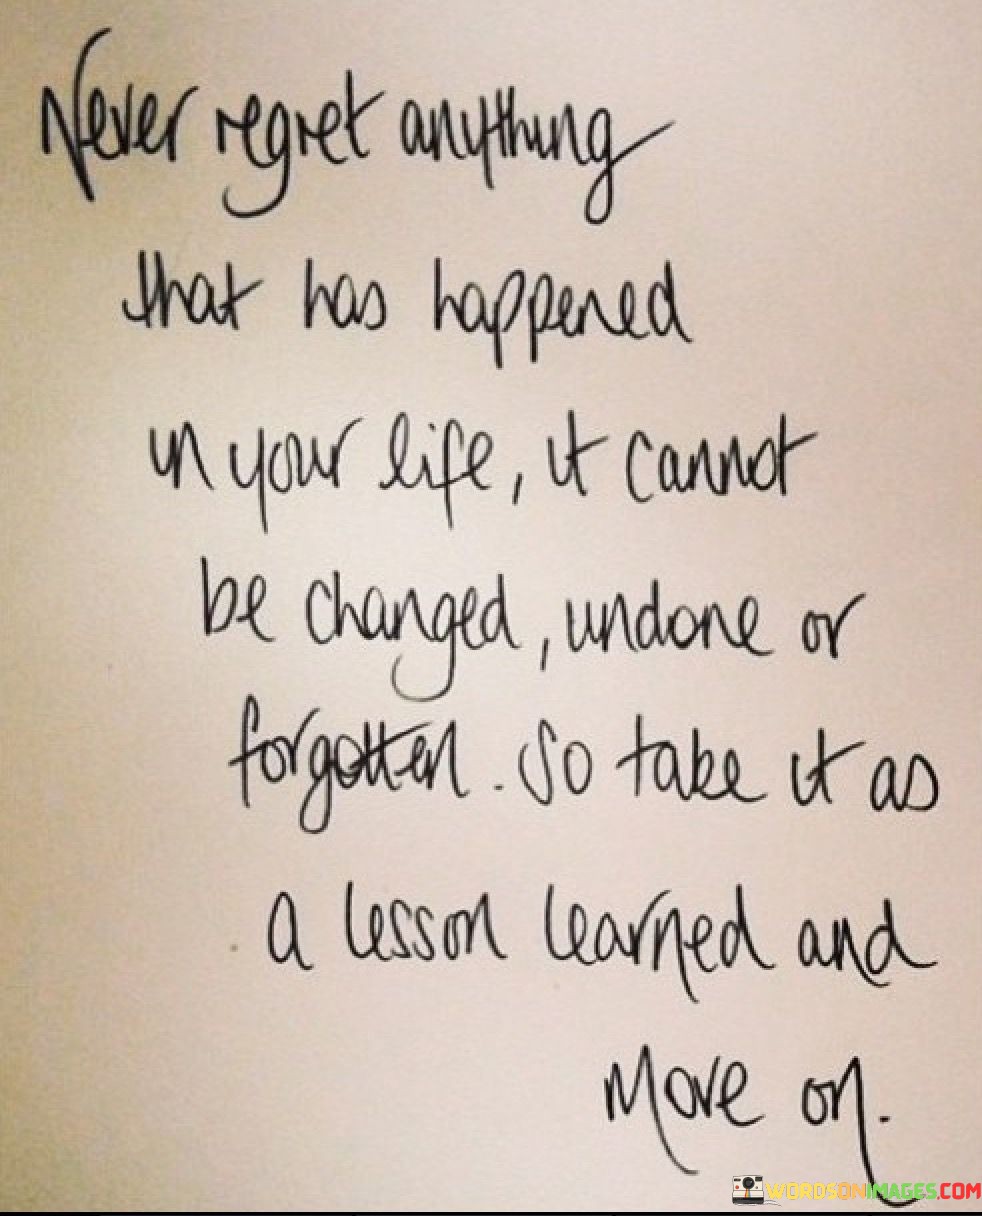 Never regret anything
that has happened
in your life, it cannot
be changed, undone or
forgotten. So take it as
a lesson learned and
Move on.
WORDSONIMAGES.COM